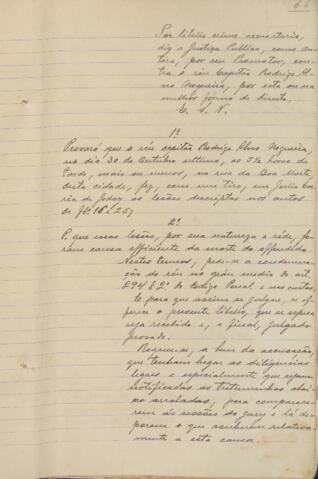 Por libello crime accusatorio,
diz a Justiça Publica, como au-
tora, por seu Promotor, con-
tra o réu Capitão Rodrigo Al-
ves Nogueira, por esta ou na
melhor fórma de direito.
E. S. N.
1º
Provará que o réu capitão Rodrigo Alves Nogueira,
no dia 30 de Outubro ultimo, ás 5½ horas da
tarde, mais ou menos, na rua da Boa Morte,
desta cidade, fez, com um tiro, em Julio Cor-
rêa de Godoy as lesões descriptas nos autos
de fls. 16 e 25;
2º
P. que essas lesões, por sua natureza e séde, fo-
ram causa efficiente da morte do offendido.
Nestes termos, pede-se a condemna-
ção do réo no gráu medio do art.
294 § 2º do Codigo Penal e nas custas.
E para que assim se julgue, se of-
ferece o presente libello, que se espera
seja recebido e, a final, julgado
provado.
Requer-se, a bem da accusação,
que tenham logar as diligencias
legaes e especialmente que sejam
notificadas as testemunhas abai-
xo arroladas, para comparece-
rem ás sessões do jury e lá de-
porem o que souberem relativa-
mente a esta causa.